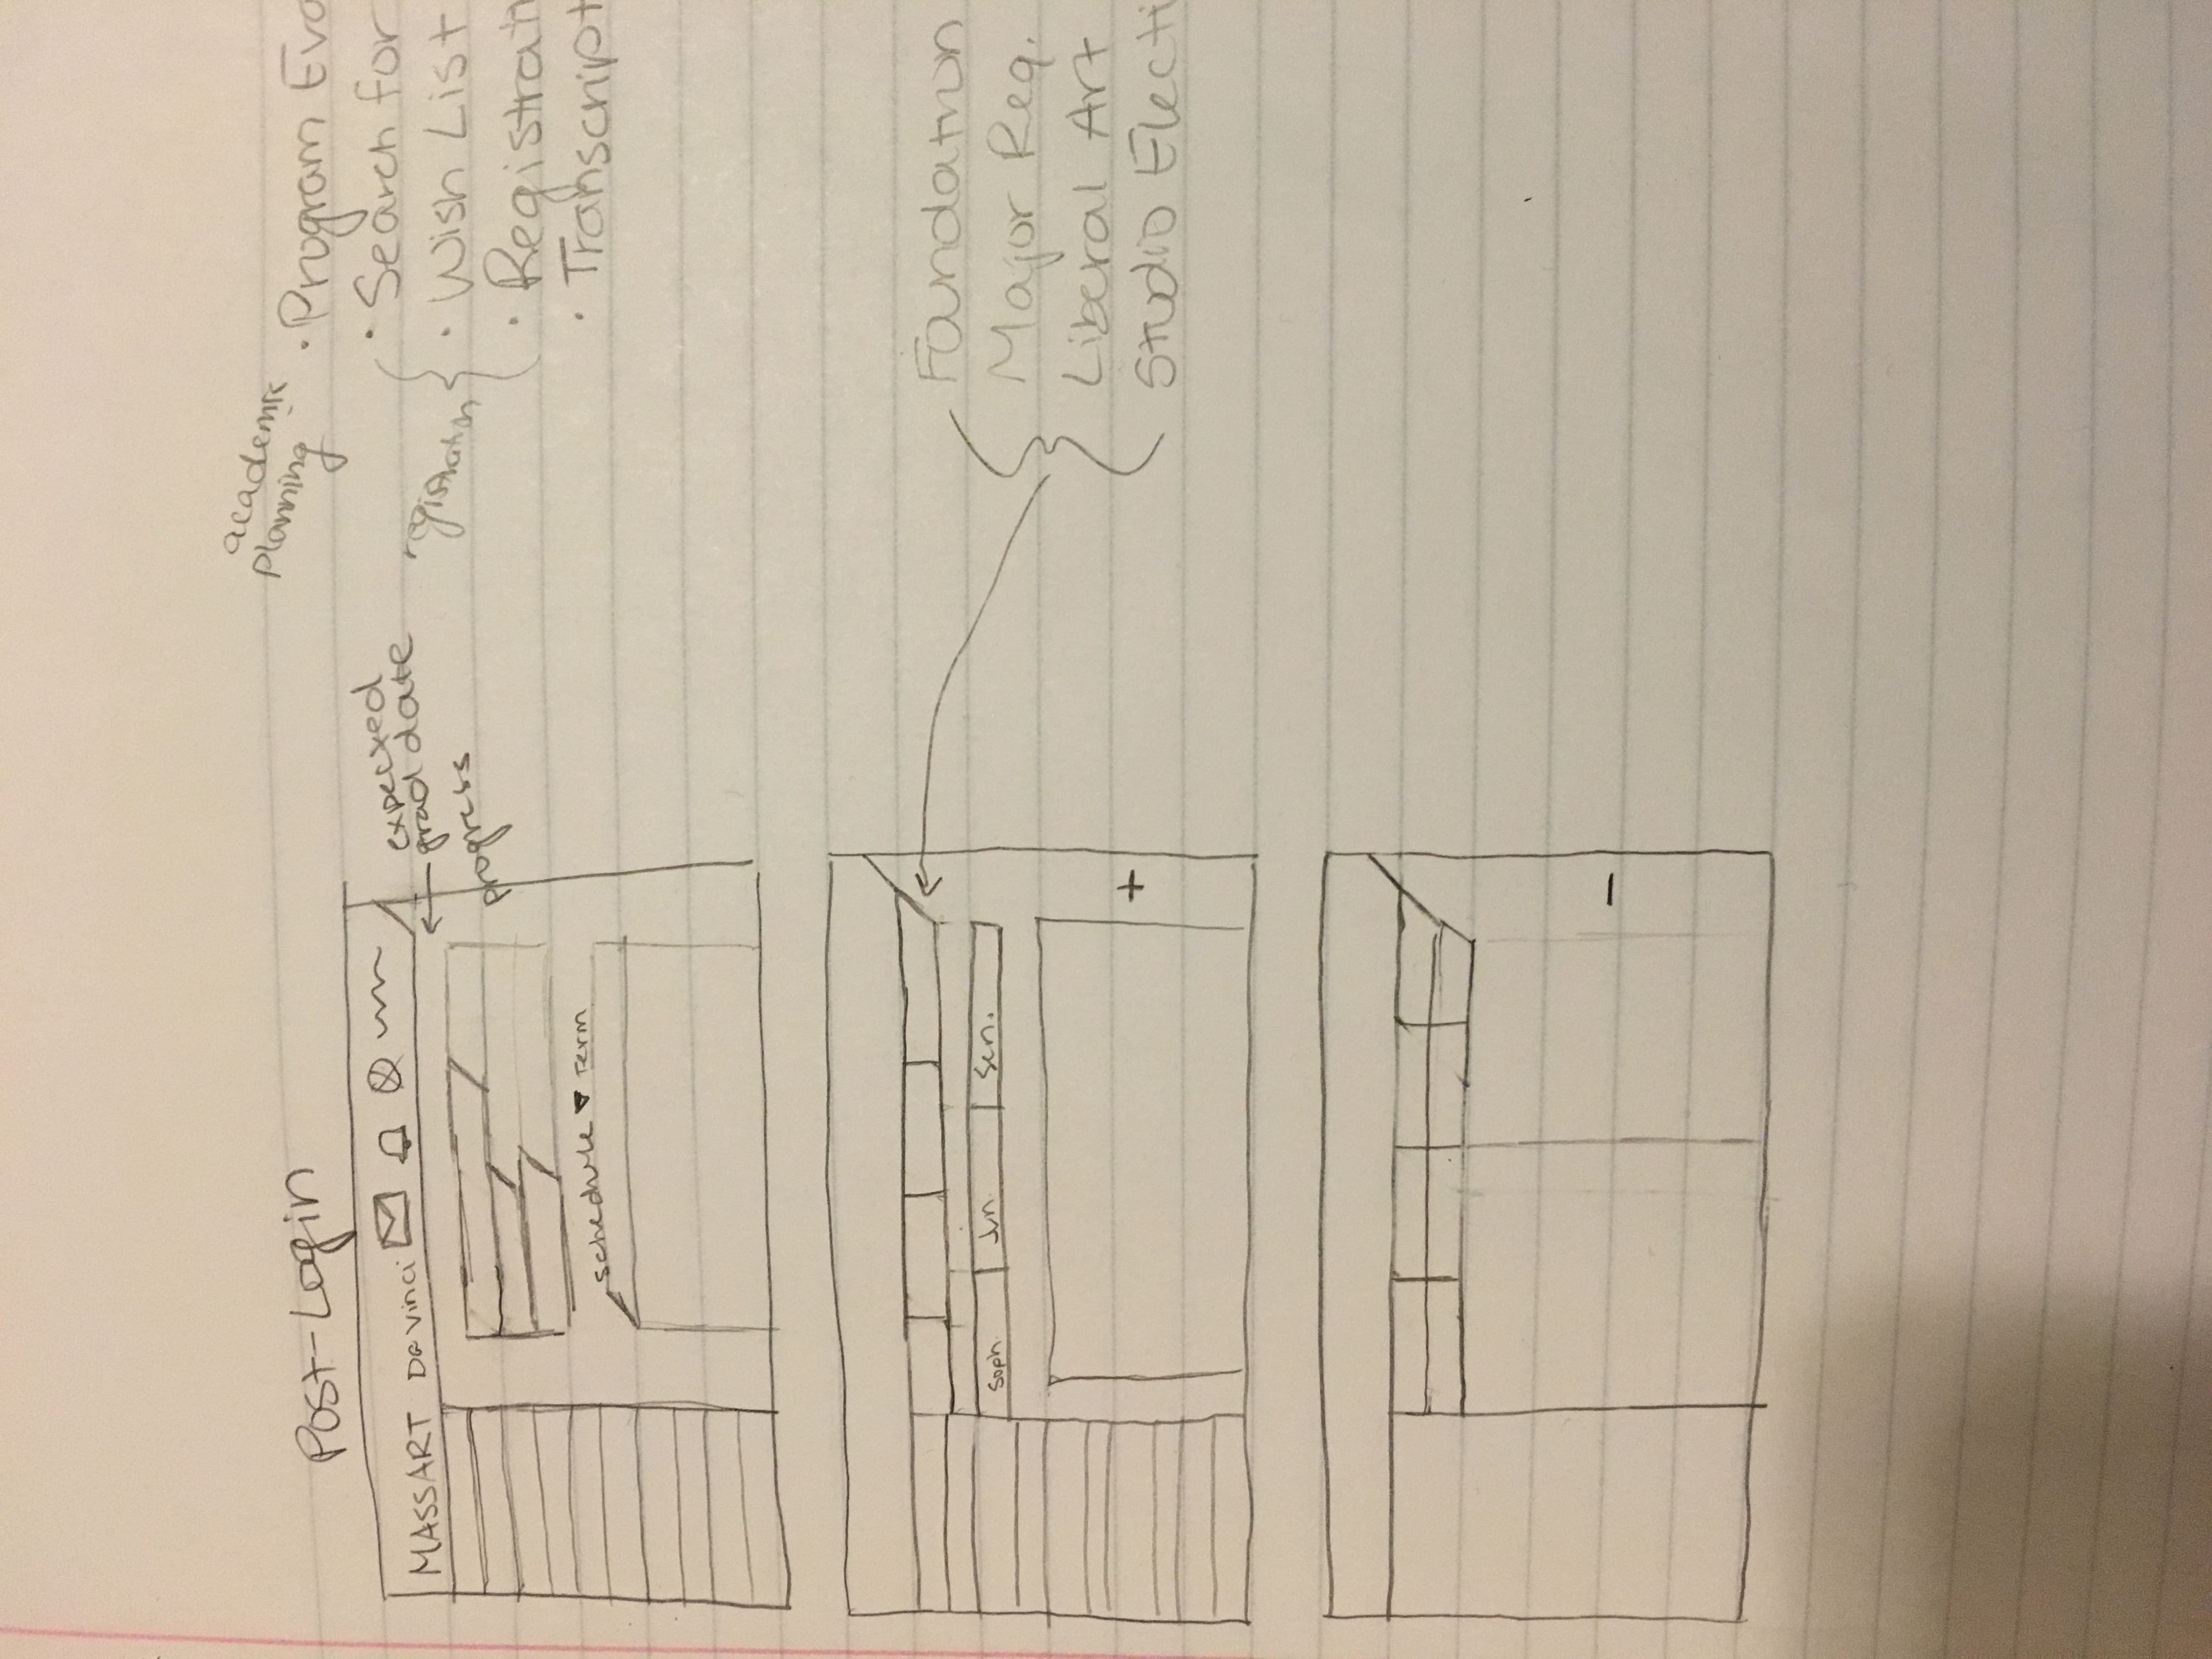 Post-Login
MASSART DaVinci
expected
grad date
progress
schedule ▼ Term
academic
Planning
• Program Eva
• Search for
registration
• Wish List
• Registrati
• Transcript
Soph. Jun. Sen.
Foundation
Major Req.
Liberal Art
Studio Electi
+
-